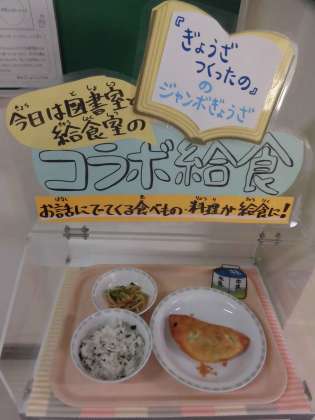 『ぎょうざ
つくったの』
の
ジャンボぎょうざ
今日は図書室と
給食室の
コラボ給食
お話にでてくる食べもの・料理が給食に!